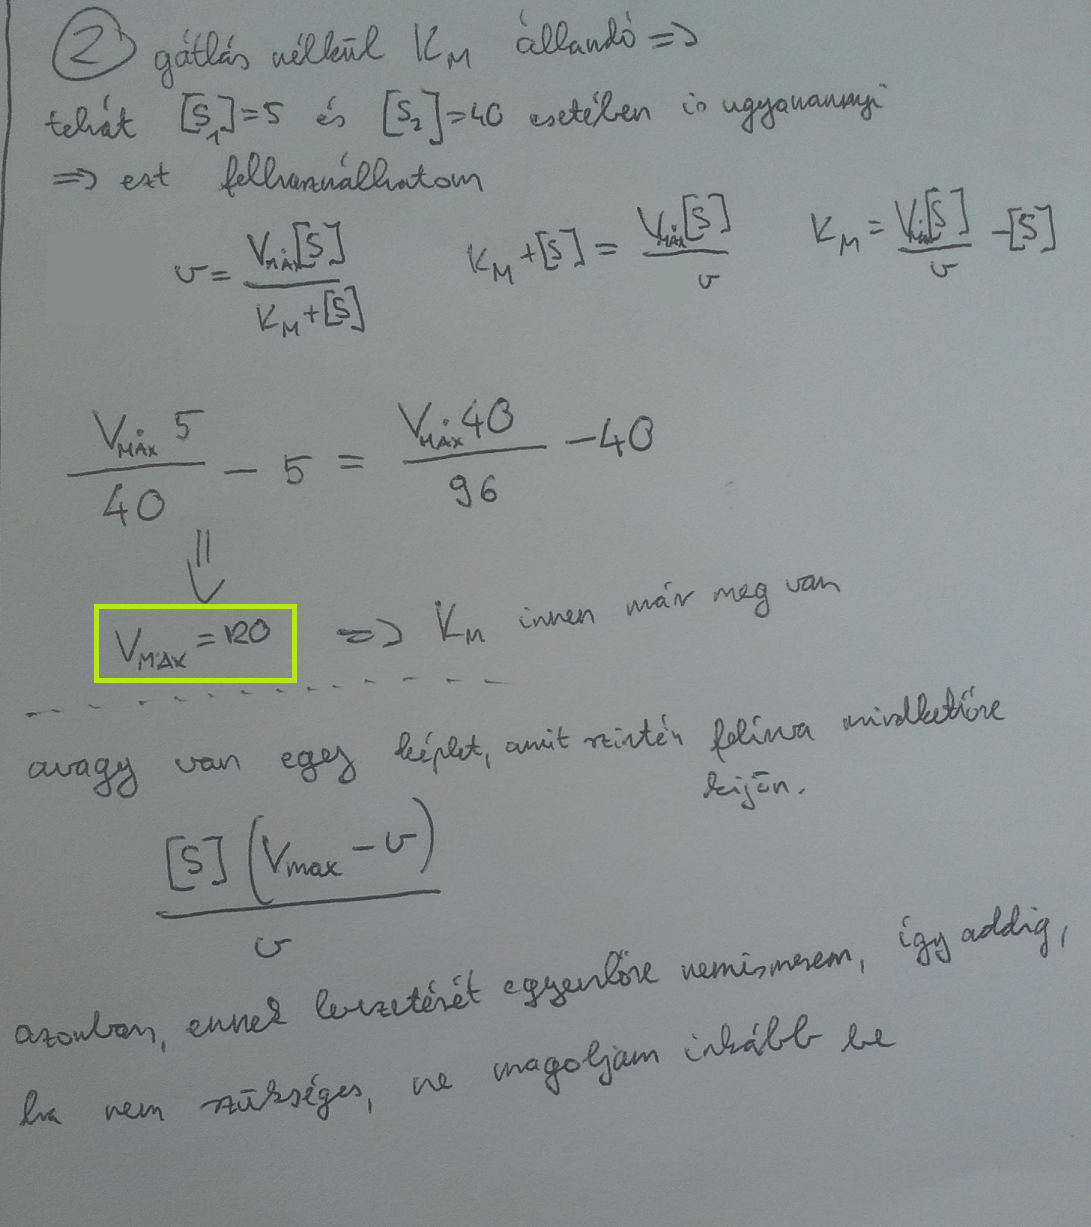 ② gátlás nélkül K_M állandó ⇒
tehát [S_1]=5 és [S_2]=40 esetében is ugyanannyi
⇒ ezt felhasználhatom
v = V_MAX[S] / (K_M+[S])   K_M+[S] = V_MAX[S] / v   K_M = V_MAX[S] / v − [S]
V_MÁX 5 / 40 − 5 = V_MÁX 40 / 96 − 40
⇓
V_MAX = 120 ⇒ K_M innen már meg van
avagy van egy képlet, amit szintén felírva mindkettőre
kijön.
[S] (V_max − v) / v
azonban, ennek levezetését egyenlőre nem ismerem, így addig,
ha nem szükséges, ne magoljam inkább be